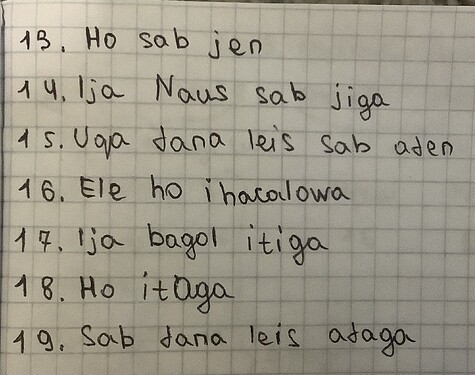 13. Ho sab jen
14. Ija Naus sab jiga
15. Uqa dana leis sab aden
16. Ele ho ihacalowa
17. Ija bagol itiga
18. Ho itaga
19. Sab dana leis adaga